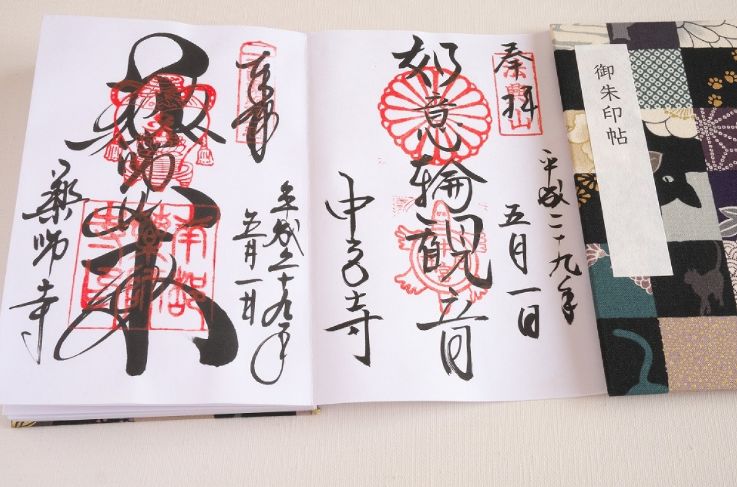 御朱印帖
奉拝
平成二十九年
五月一日
如意輪觀音
中宮寺
奉拝
平成二十九年
五月一日
薬師如来
薬師寺